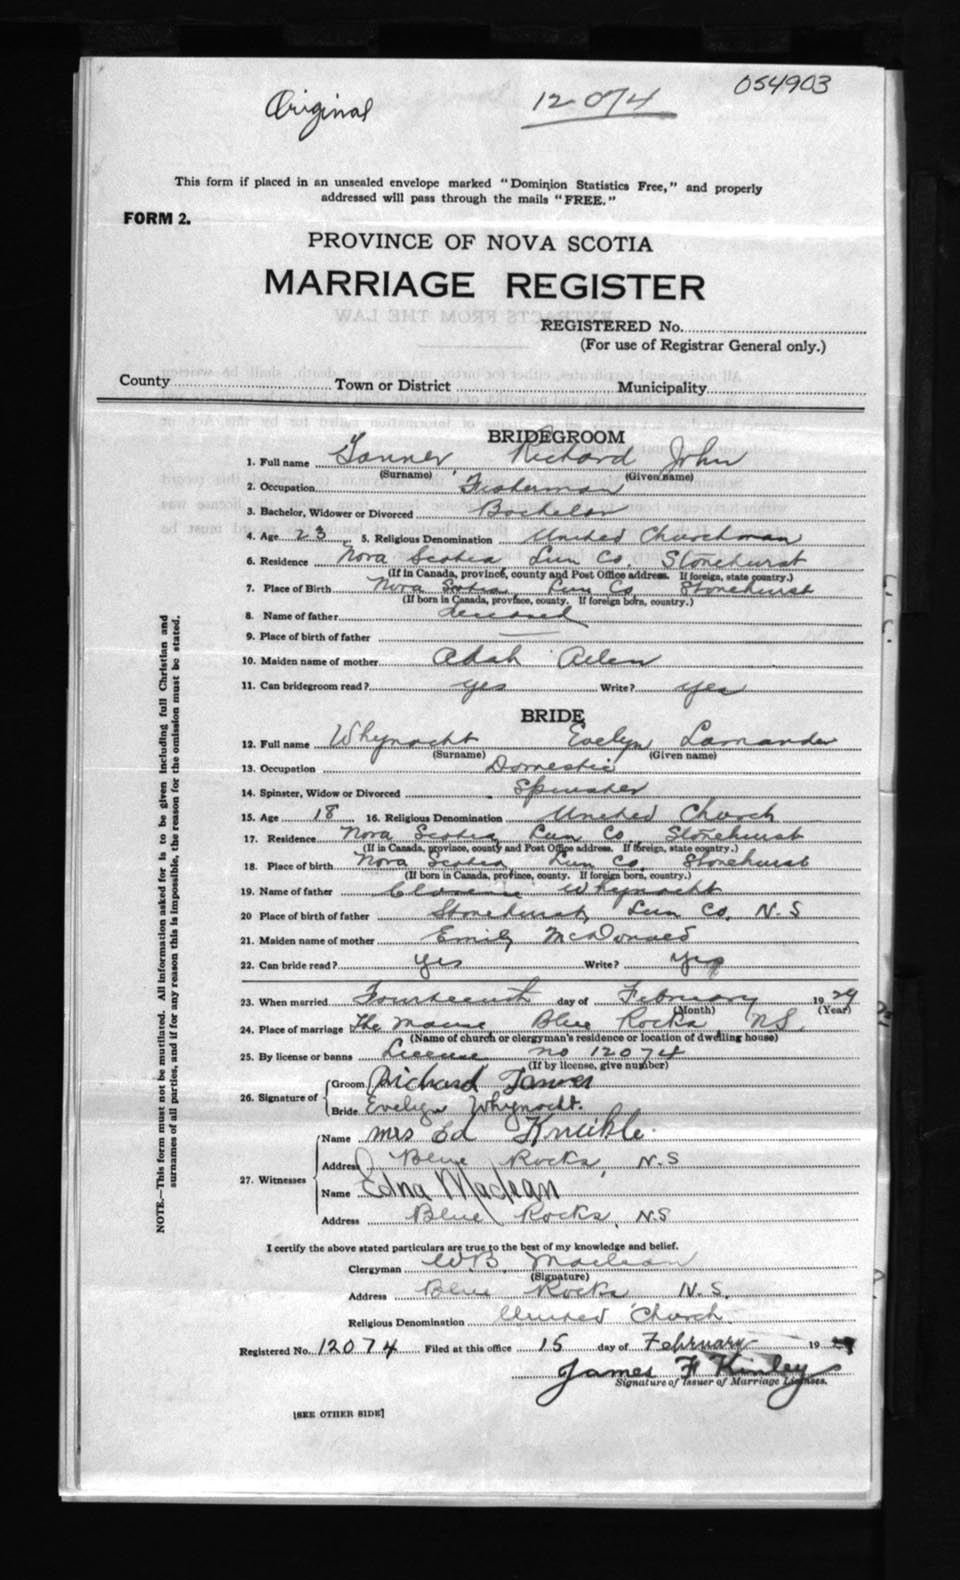 Original 12074 054903
This form if placed in an unsealed envelope marked "Dominion Statistics Free," and properly
addressed will pass through the mails "FREE."
FORM 2.
PROVINCE OF NOVA SCOTIA
MARRIAGE REGISTER
REGISTERED No.
(For use of Registrar General only.)
County Town or District Municipality
BRIDEGROOM
1. Full name Tanner Richard John
(Surname) (Given name)
2. Occupation Fisherman
3. Bachelor, Widower or Divorced Bachelor
4. Age 23 5. Religious Denomination United Churchman
6. Residence Nova Scotia Lun Co. Stonehurst
(If in Canada, province, county and Post Office address. If foreign, state country.)
7. Place of Birth Nova Scotia Lun Co Stonehurst
(If born in Canada, province, county. If foreign born, country.)
8. Name of father deceased
9. Place of birth of father —
10. Maiden name of mother Adah
11. Can bridegroom read? yes Write? yes
BRIDE
12. Full name Whynacht Evelyn
(Surname) (Given name)
13. Occupation Domestic
14. Spinster, Widow or Divorced Spinster
15. Age 18 16. Religious Denomination United Church
17. Residence Nova Scotia Lun Co. Stonehurst
(If in Canada, province, county and Post Office address. If foreign, state country.)
18. Place of birth Nova Scotia Lun Co. Stonehurst
(If born in Canada, province, county. If foreign born, country.)
19. Name of father Whynacht
20 Place of birth of father Stonehurst, Lun Co. N.S
21. Maiden name of mother Emily McDonald
22. Can bride read? yes Write? yes
23. When married Fourteenth day of February 1929
(Month) (Year)
24. Place of marriage The Manse Blue Rocks, N.S.
(Name of church or clergyman's residence or location of dwelling house)
25. By license or banns License no 12074
(If by license, give number)
26. Signature of
Groom Richard Tanner
Bride Evelyn Whynacht.
27. Witnesses
Name Mrs Ed Knickle
Address Blue Rocks, N.S
Name Edna Maclean
Address Blue Rocks, N.S
I certify the above stated particulars are true to the best of my knowledge and belief.
Clergyman W.B. Maclean
(Signature)
Address Blue Rocks N.S.
Religious Denomination United Church
Registered No. 12074 Filed at this office 15 day of February 1929
James F Kinley
Signature of Issuer of Marriage Licenses.
[SEE OTHER SIDE]
NOTE.—This form must not be mutilated. All information asked for is to be given including full Christian and
surnames of all parties, and if for any reason this is impossible, the reason for the omission must be stated.